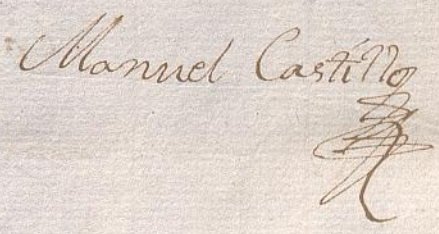 Manuel Castillo